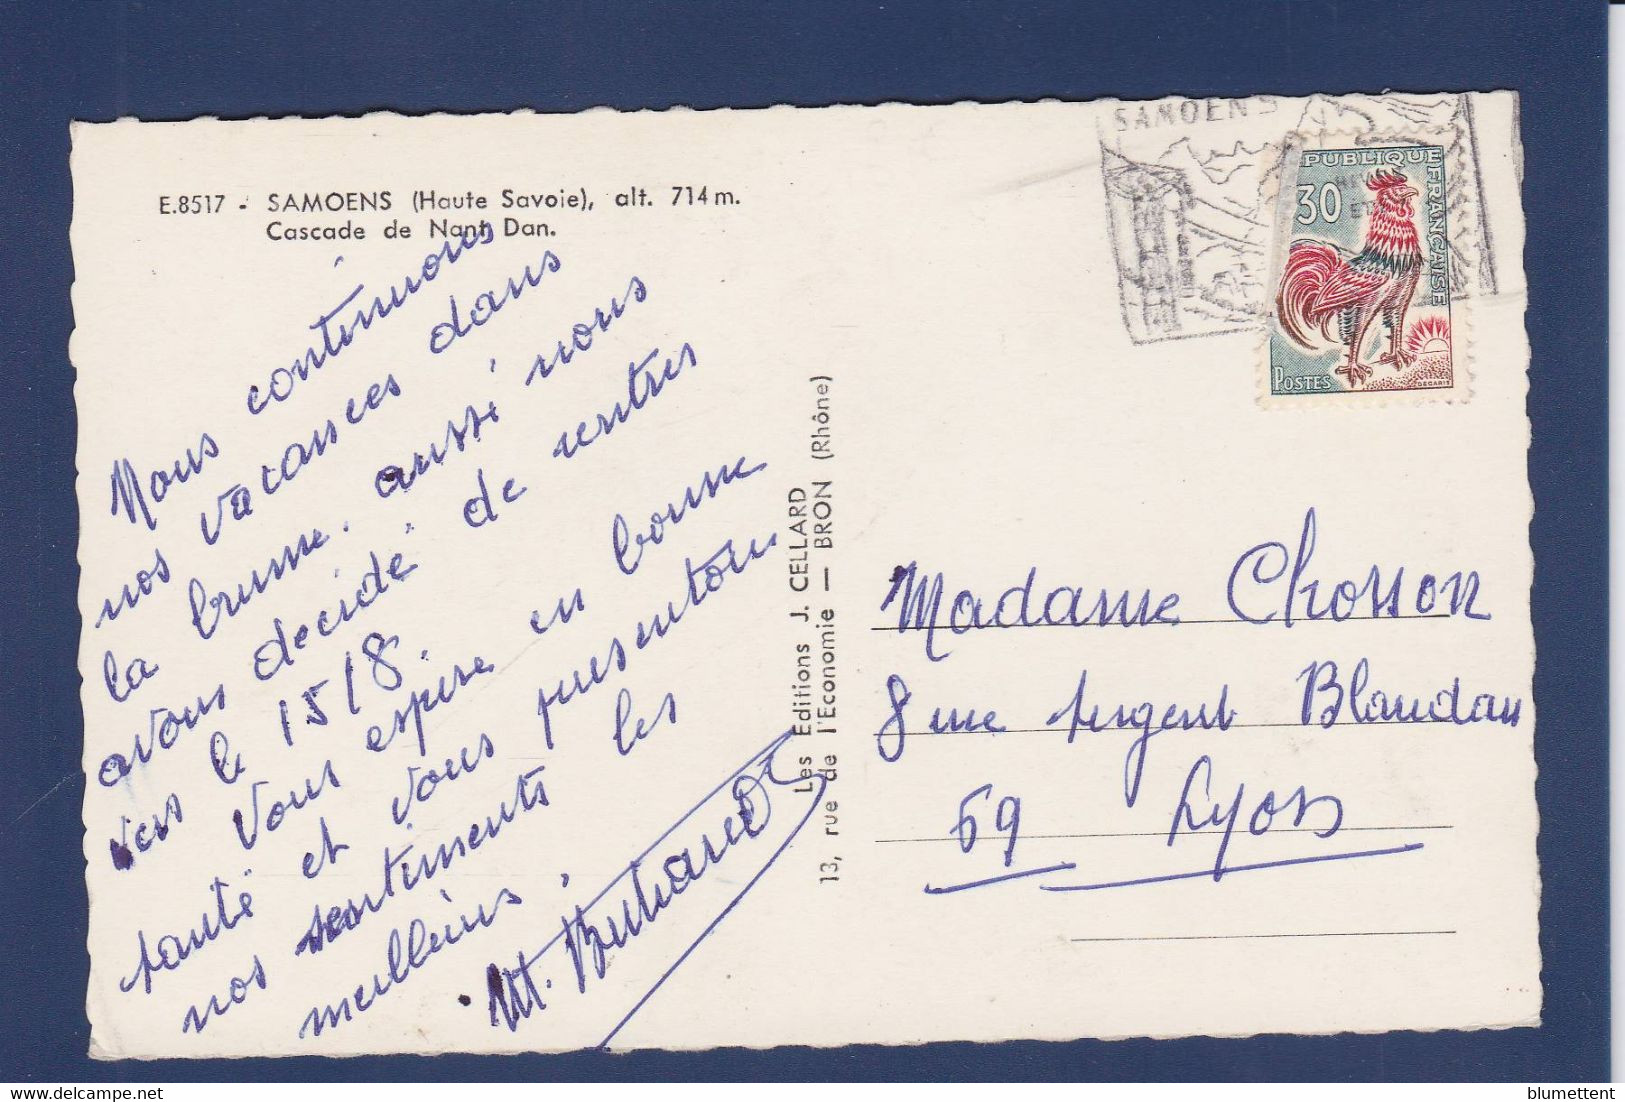 E.8517 - SAMOENS (Haute Savoie), alt. 714 m.
Cascade de Nant Dan.
Nous continuons
nos vacances dans
la brume. aussi nous
avons decidé de rentrer
vers le 15/8.
Vous espere en bonne
santé et vous presentons
nos sentiments les
meilleurs.
Les Editions J. CELLARD
13, rue de l'Economie — BRON (Rhône)
SAMOENS
HIVER
ETE
PUBLIQUE FRANÇAISE
30
POSTES
DECARIS
Madame Chosson
8 rue sergent Blandan
69 Lyon
blumettent